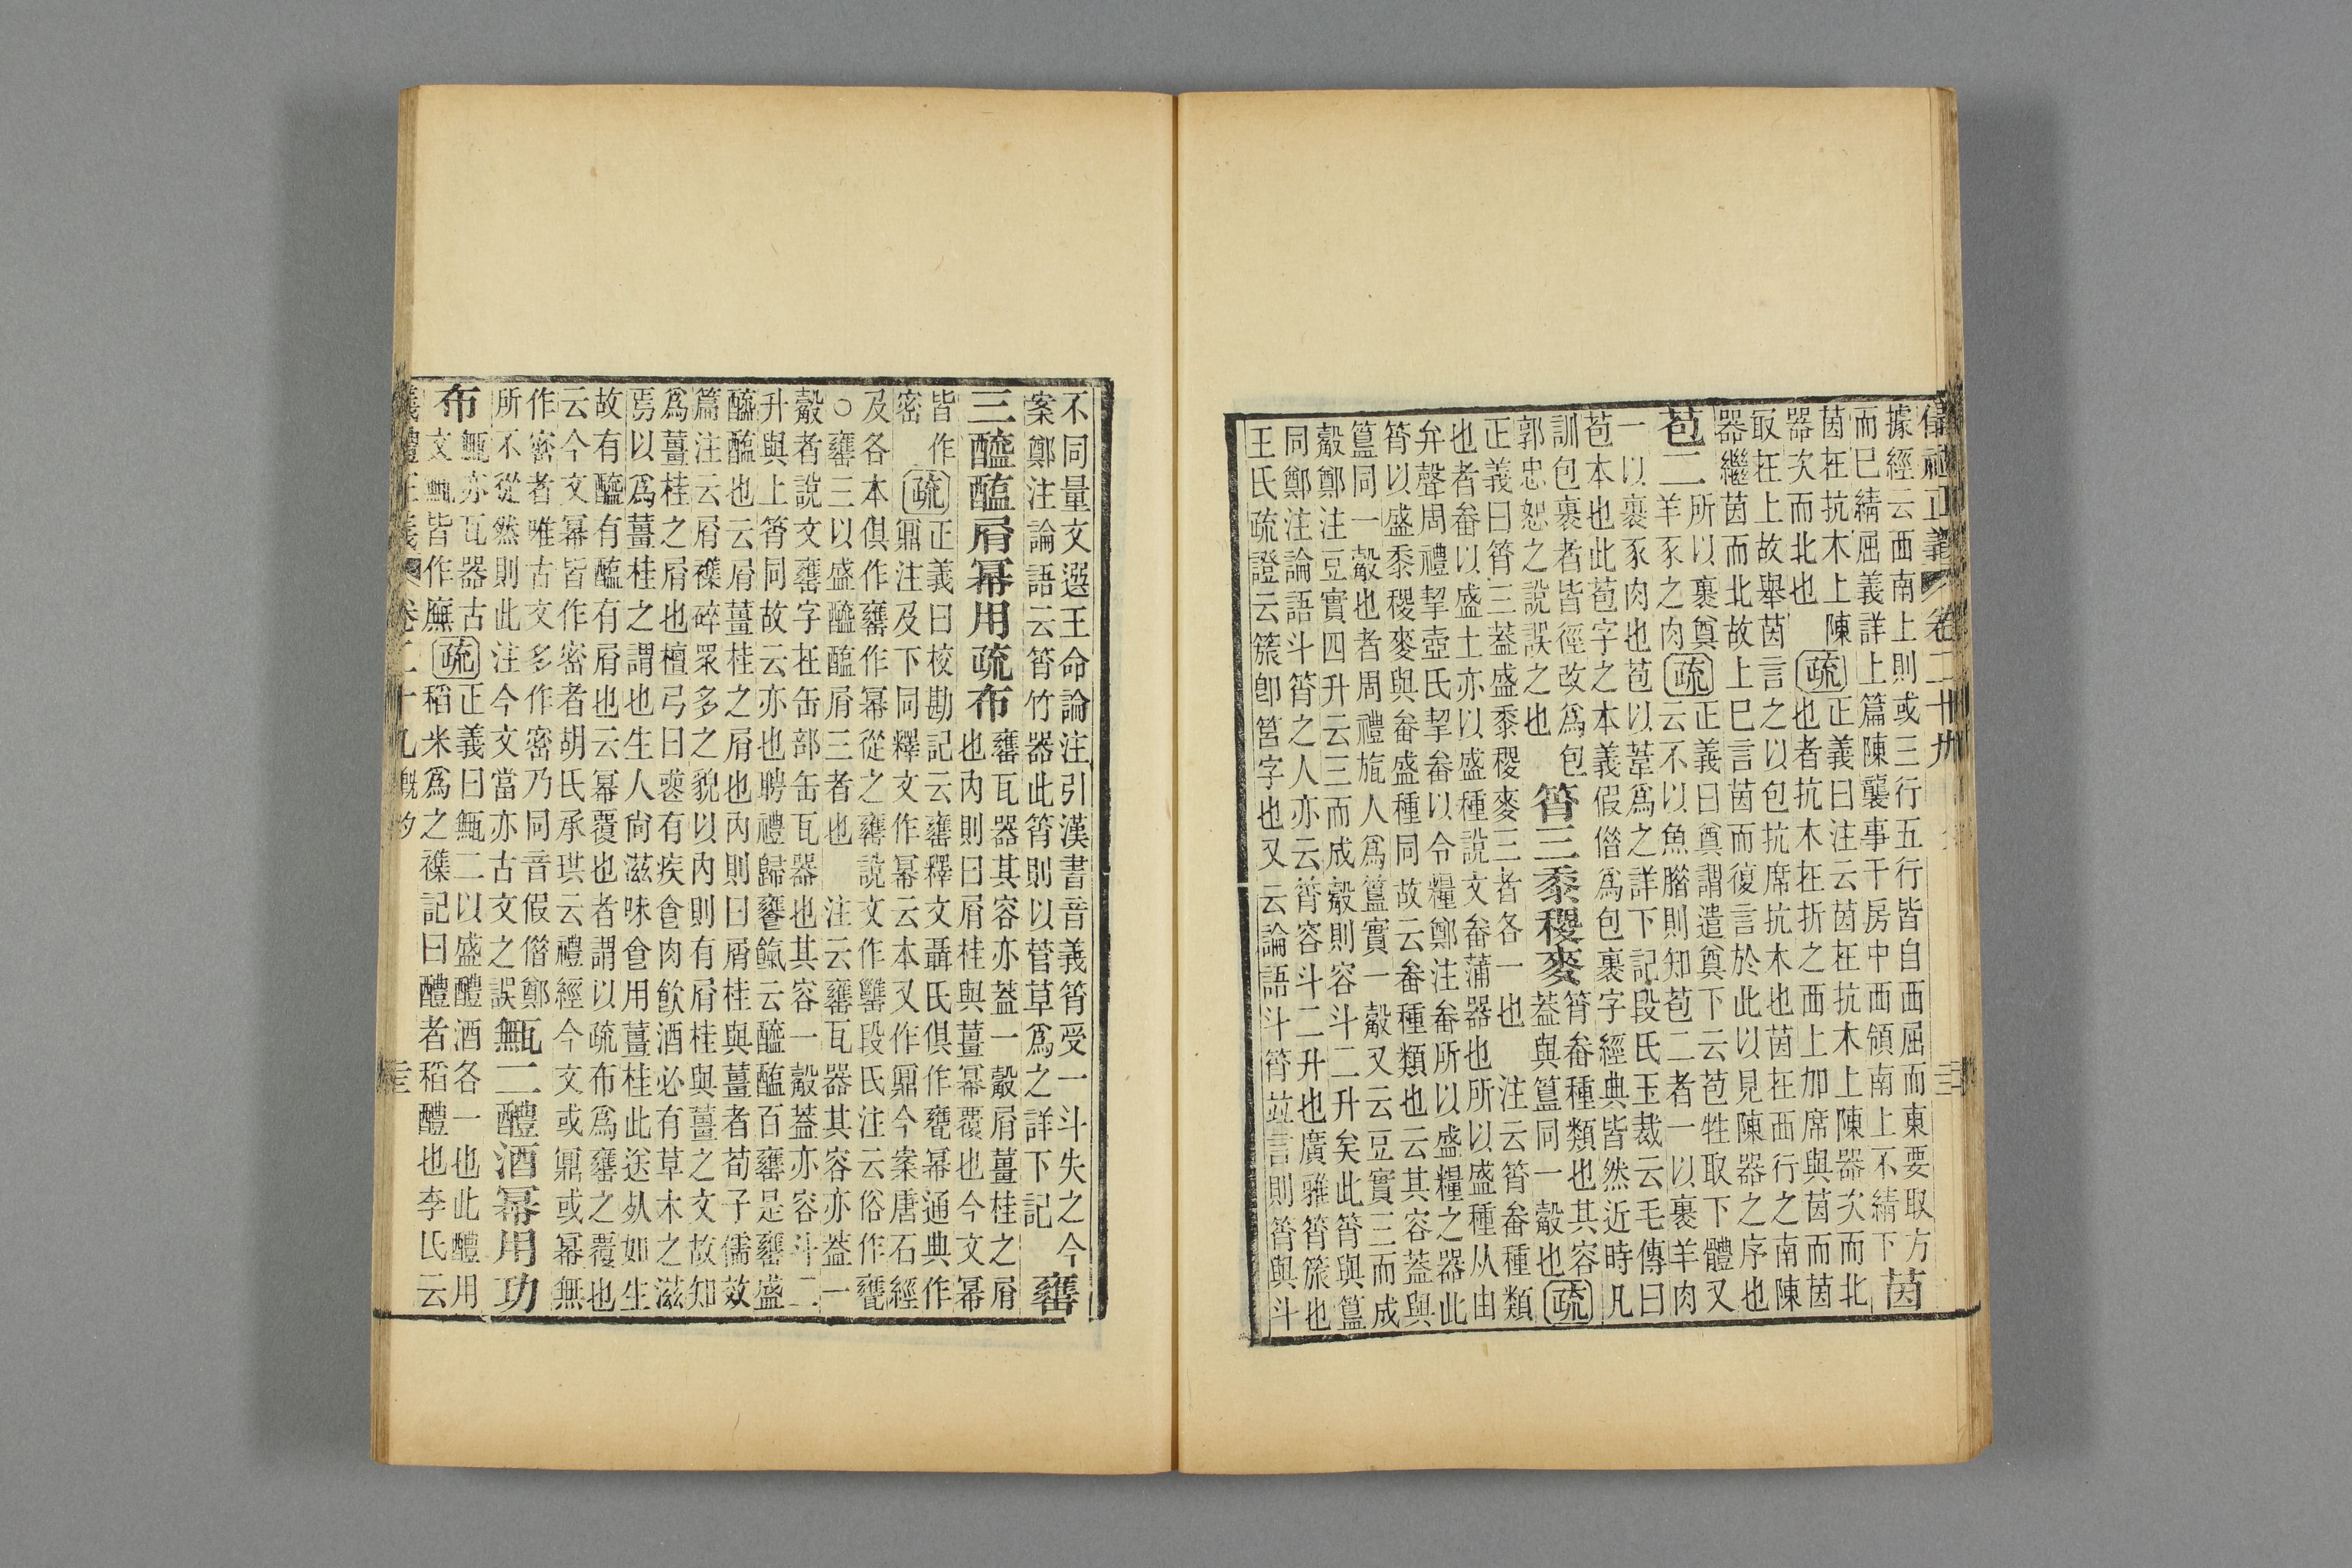 儀禮正義 卷二十九
據經云西南上則或三行五行皆自西屈而東要取方
而已綪屈義詳上篇陳襲事于房中西領南上不綪下
茵
茵在抗木上陳疏正義曰注云茵在抗木上陳器次而北
器次而北也疏也者抗木在折之西上加席與茵而茵
取在上故舉茵言之以包抗席抗木也茵在西行之南陳
器繼茵而北故上已言茵而復言於此以見陳器之序也
苞二
所以裹奠疏正義曰奠謂遣奠下云苞牲取下體又
羊豕之肉疏云不以魚腊則知苞二者一以裹羊肉
一以裹豕肉也苞以葦爲之詳下記段氏玉裁云毛傳曰
苞本也此苞字之本義假借爲包裹字經典皆然近時凡
訓包裹者皆徑改爲包
郭忠恕之說誤之也
筲三黍稷麥
筲畚種類也其容
蓋與簋同一觳也
疏
正義曰筲三蓋盛黍稷麥三者各一也 注云筲畚種類
也者畚以盛土亦以盛種說文畚蒲器也所以盛種从由
弁聲周禮挈壺氏挈畚以令糧鄭注畚所以盛糧之器此
筲以盛黍稷麥與畚盛種同故云畚種類也云其容蓋與
簋同一觳也者周禮瓬人爲簋實一觳又云豆實三而成
觳鄭注豆實四升云三而成觳則容斗二升矣此筲與簋
同鄭注論語斗筲之人亦云筲容斗二升也廣雅筲也
王氏疏證云卽筥字也又云論語斗筲竝言則筲與斗
不同量文選王命論注引漢書音義筲受一斗失之今
案鄭注論語云筲竹器此筲則以菅草爲之詳下記
罋
三醯醢屑冪用疏布
罋瓦器其容亦蓋一觳屑薑桂之屑
也內則曰屑桂與薑冪覆也今文冪
皆作疏正義曰校勘記云罋釋文聶氏俱作甕冪通典作
密疏鼏注及下同釋文作冪云本又作鼏今案唐石經
及各本俱作罋作冪從之罋說文作段氏注云俗作甕
○罋三以盛醯醢屑三者也 注云罋瓦器其容亦蓋一
觳者說文罋字在缶部缶瓦器也其容一觳蓋亦容斗二
升與上筲同故云亦也聘禮歸饔餼云醯醢百罋是罋盛
醯醢也云屑薑桂之屑也內則曰屑桂與薑者荀子儒效
篇注云屑襍碎眾多之貌以內則有屑桂與薑之文故知
爲薑桂之屑也檀弓曰喪有疾食肉飮酒必有草木之滋
焉以爲薑桂之謂也生人尙滋味食用薑桂此送死如生
故有醯有醢有屑也云冪覆也者謂以疏布爲罋之覆也
云今文冪皆作密者胡氏承珙云禮經今文或鼏或冪無
作密者唯古文多作密乃同音假借鄭
所不從然則此注今文當亦古文之誤
甒二醴酒冪用功
布
甒亦瓦器古
文甒皆作廡
疏
正義曰甒二以盛醴酒各一也此醴用
稻米爲之襍記曰醴者稻醴也李氏云
儀禮正義 卷二十九 旣夕